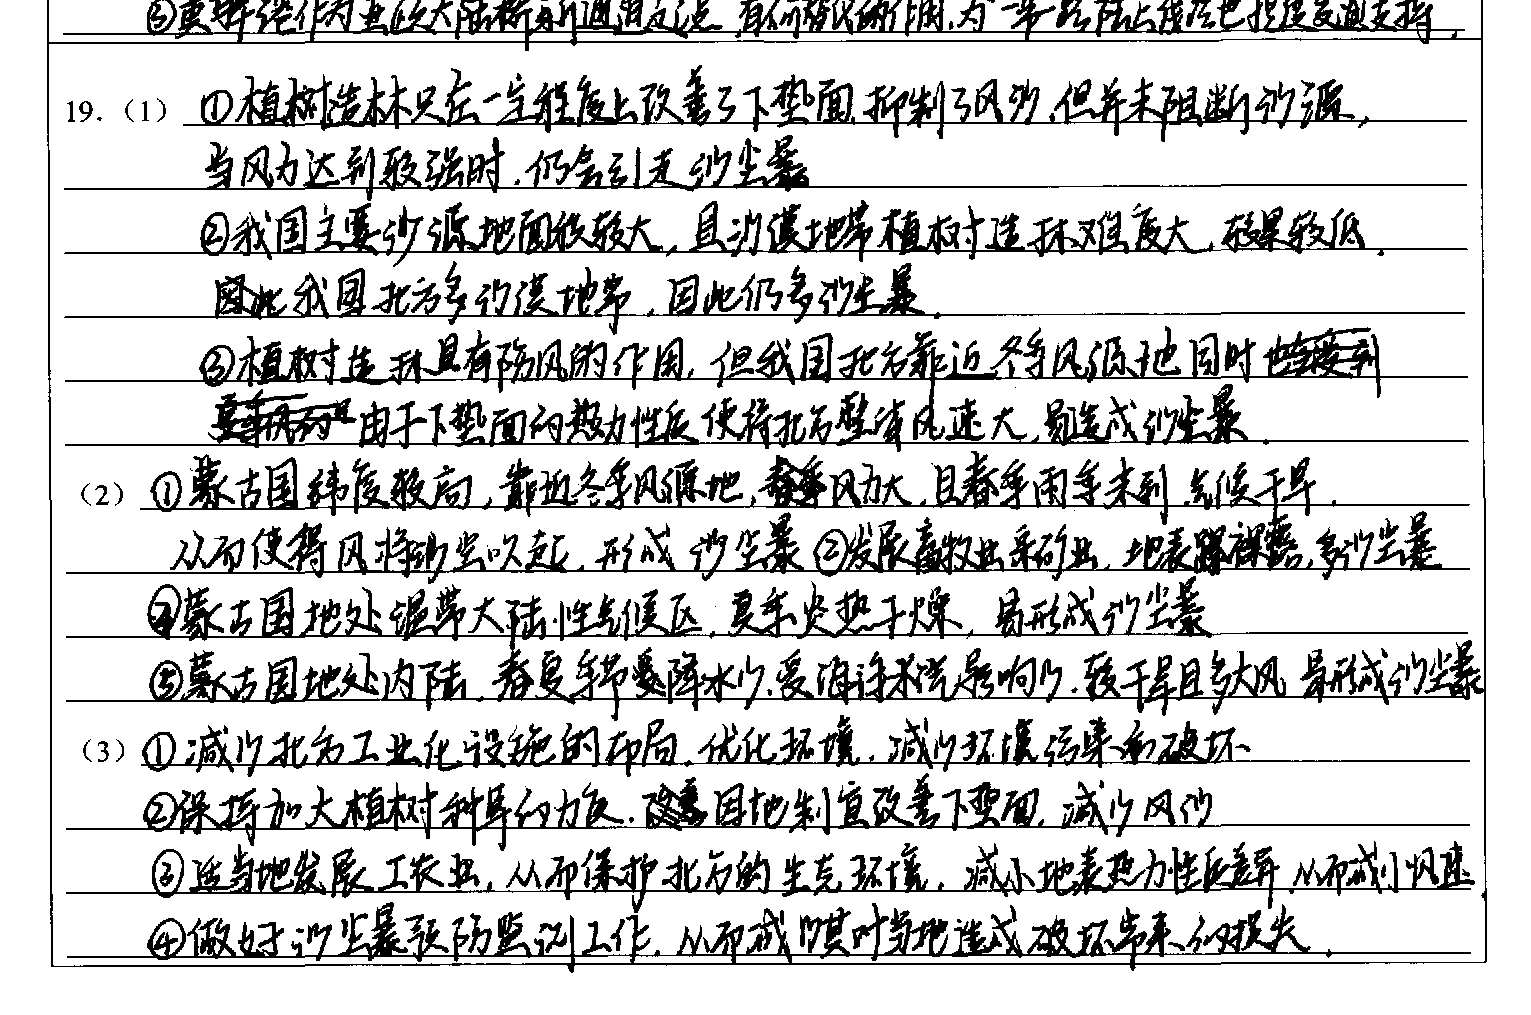 ⑤更

19.（1）①植树造林只在一定程度上改善了下垫面,抑制了风沙,但并未阻断沙源,
当风力达到较强时,仍会引走沙尘暴
②我国主要沙源地面积较大,且沙漠地带植树造林难度大,效果较低.
因此我国北方多沙漠地带,因此仍多沙尘暴.
③植树造林具有防风的作用,但我国北方靠近冬季风源地同时
由于下垫面的热力性质使得北方整体风速大,易造成沙尘暴.
（2）①蒙古国纬度较高,靠近冬季风源地,春季风力大,且春季雨季未到,气候干旱.
从而使得风将沙尘吹起,形成沙尘暴②发展畜牧业采矿业,地表裸露,多沙尘暴
④蒙古国地处温带大陆性气候区,夏季炎热干燥,易形成沙尘暴
⑤蒙古国地处内陆,春夏季节降水少,受海洋水汽影响少,较干旱且多大风 易形成沙尘暴
（3）①减少北方工业化设施的布局,优化环境,减少环境污染和破坏
②保持加大植树种草的力度,因地制宜改善下垫面,减少风沙
③适当地发展工农业,从而保护北方的生态环境,减小地表热力性质差异,从而减小风速.
④做好沙尘暴预防监测工作,从而减少其对当地造成破坏带来的损失.